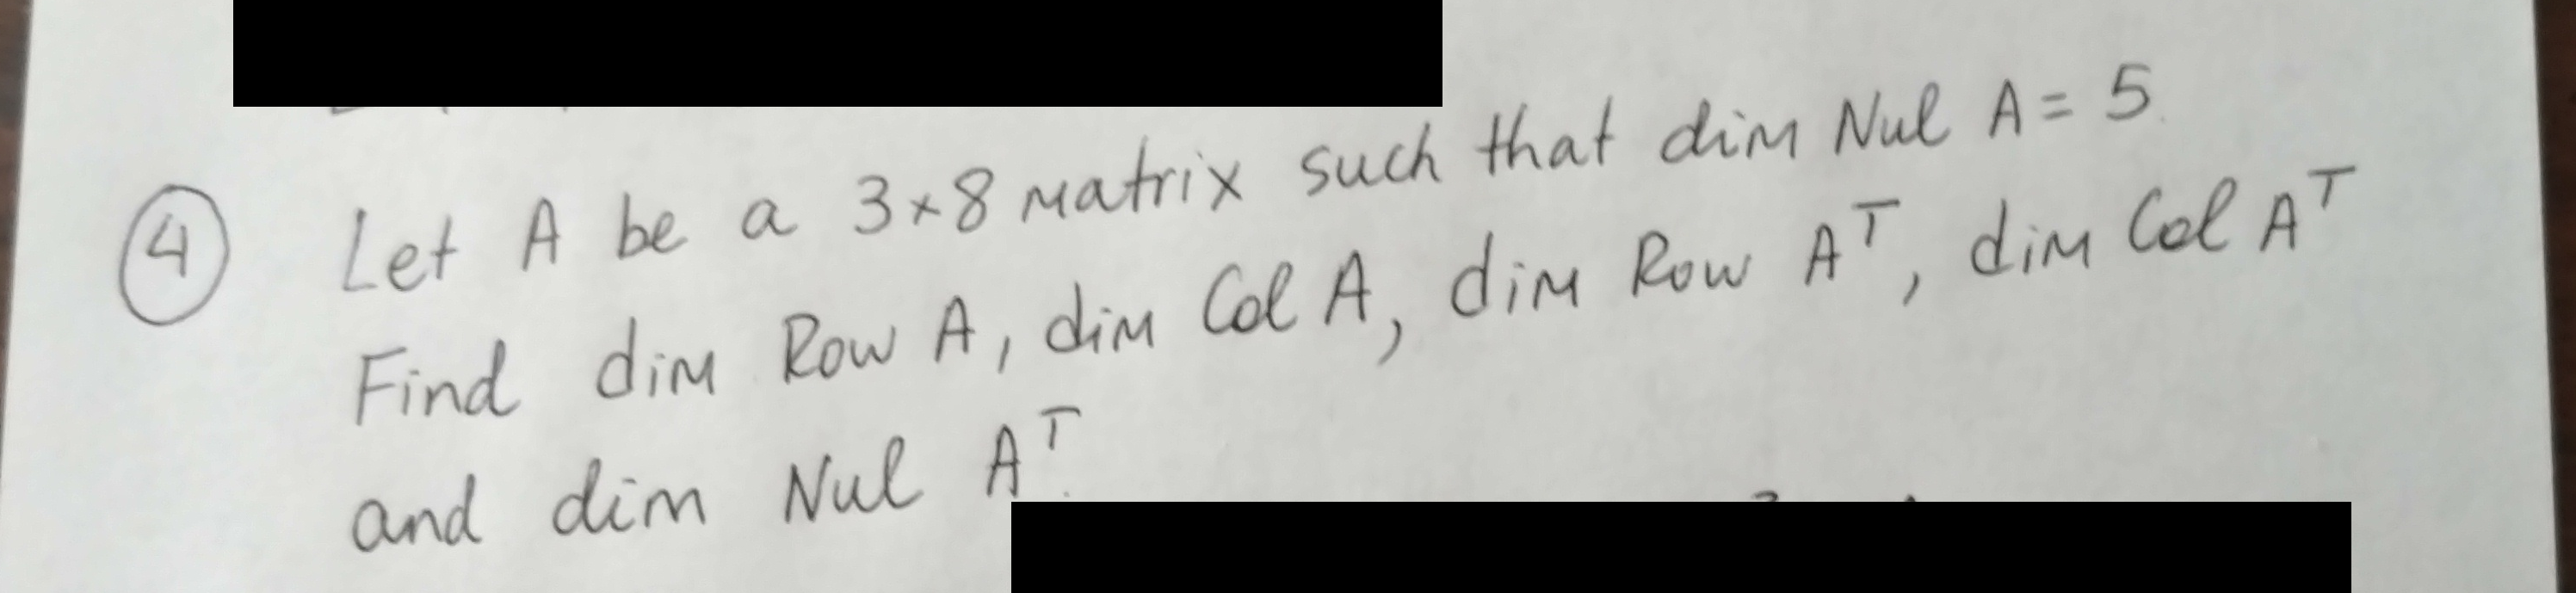 ④ Let A be a 3×8 matrix such that dim Nul A = 5.
Find dim Row A, dim Col A, dim Row Aᵀ, dim Col Aᵀ
and dim Nul Aᵀ.